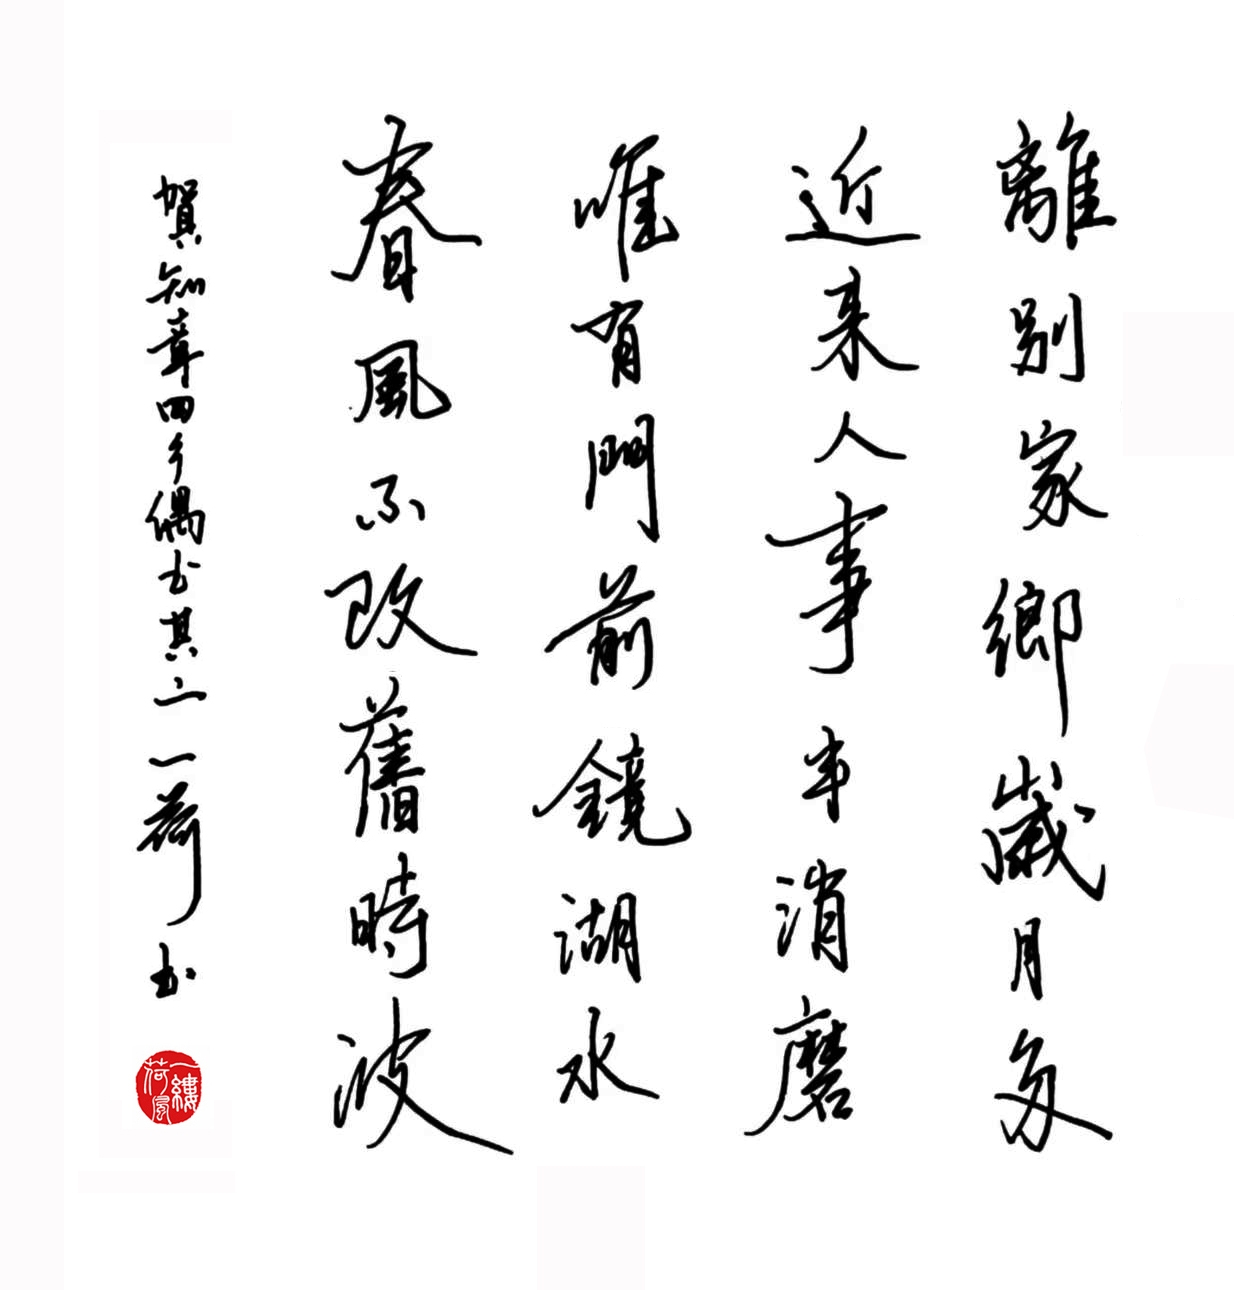 離别家鄉歲月多
近来人事半消磨
唯有門前鏡湖水
春風不改舊時波
賀知章回乡偶书其二 一荷书
一縷荷風